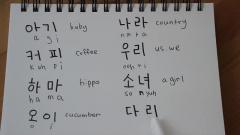 아기 baby
a gi
커피 coffee
kuh pi
하마 hippo
ha ma
오이 cucumber
o i
나라 country
na ra
우리 us, we
ooh ri
소녀 a girl
so nyuh
다리